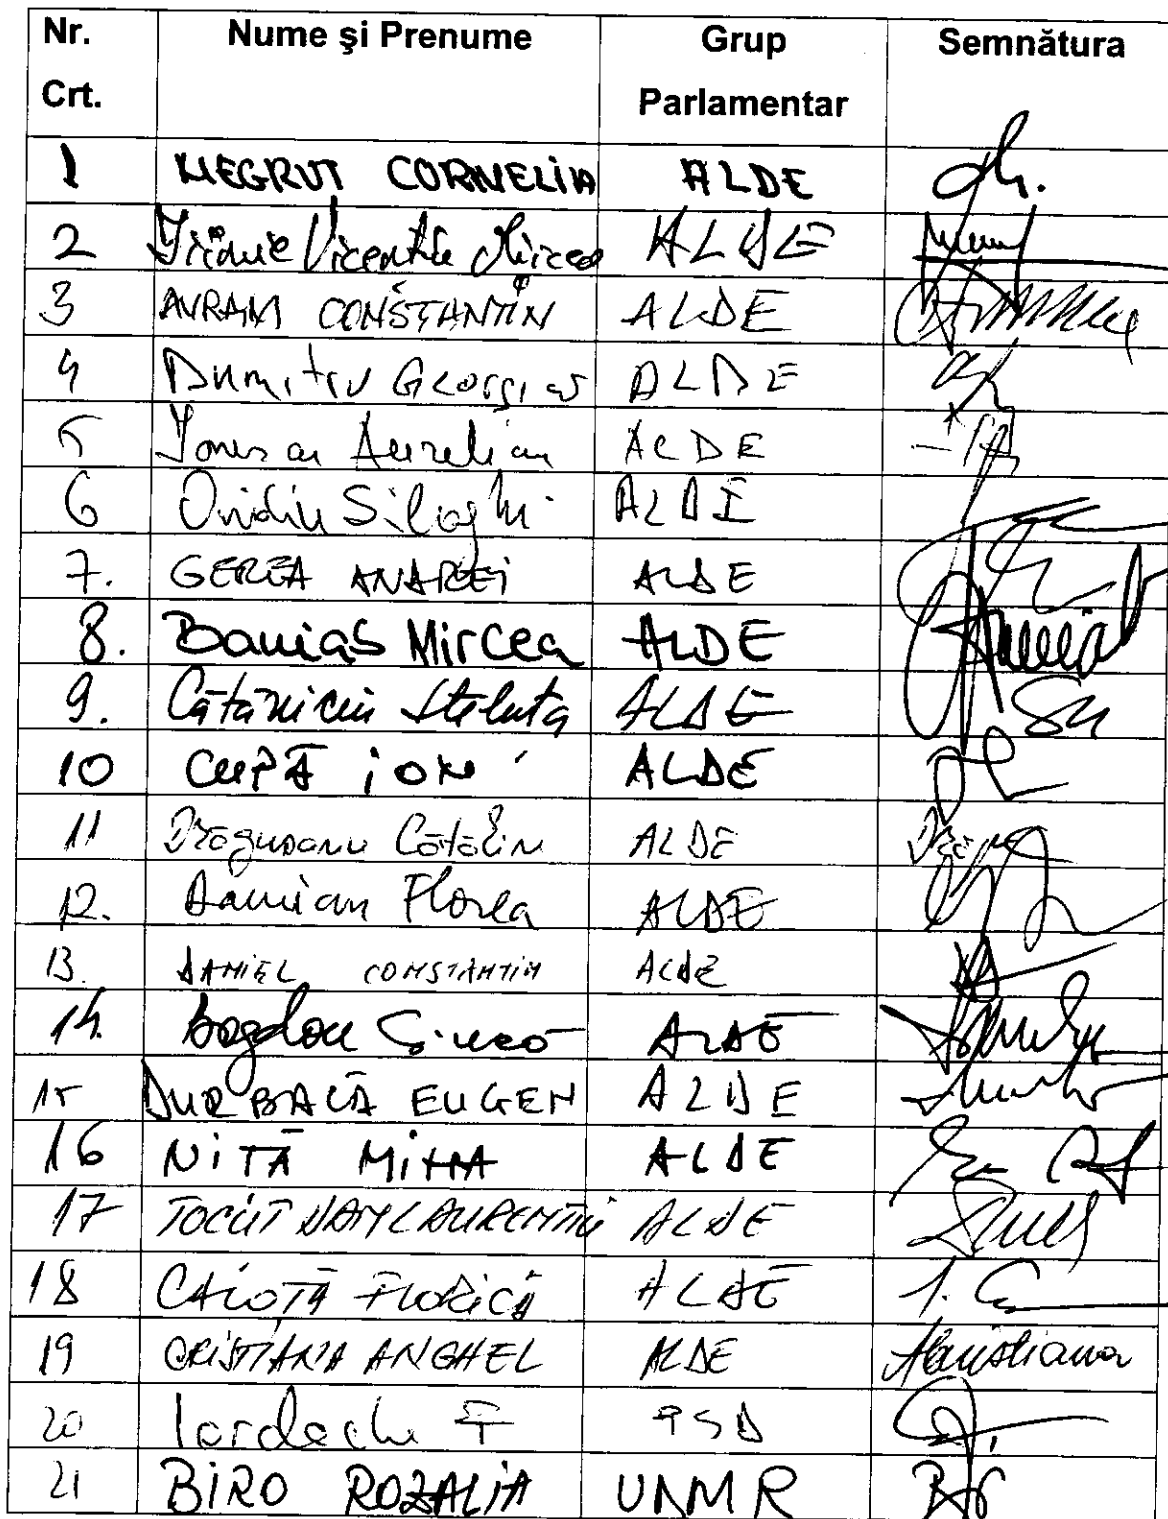 Nr. Crt. Nume și Prenume Grup Parlamentar Semnătura
1 NEGRUT CORNELIA ALDE
2 Irinie Vicentiu Mircea ALDE
3 AVRAM CONSTANTIN ALDE
4 Dumitru Georgian ALDE
5 Ionescu Aurelian ALDE
6 Ovidiu Silaghi ALDE
7. GEREA ANDREI ALDE
8. Banias Mircea ALDE
9. Cătăniciu Steluța ALDE
10 CUPĂ ION ALDE
11 Drăgușanu Cătălin ALDE
12. Damian Florea ALDE
13. DANIEL CONSTANTIN ALDE
14. Bogdan ALDE
15 DURBACĂ EUGEN ALDE
16 NITĂ MIHA ALDE
17 TOCUT DAN LAURENTIU ALDE
18 CALOTĂ FLORICĂ ALDE
19 CRISTIANA ANGHEL ALDE
20 Iordache F PSD
21 BIRO ROZALIA UNMR